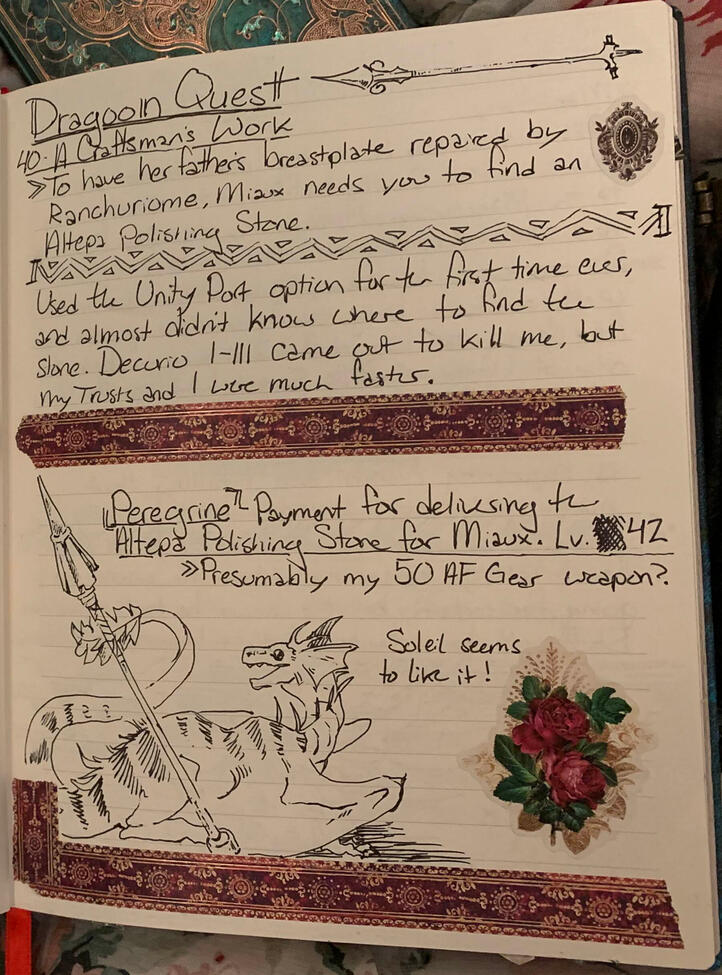 Dragoon Quest
40. A Craftsman's Work
» To have her father's breastplate repaired by
Ranchuriome, Miaux needs you to find an
Altepa Polishing Stone.
Used the Unity Port option for the first time ever,
and almost didn't know where to find the
stone. Decurio I-III came out to kill me, but
my Trusts and I were much faster.
"Peregrine" Payment for delivering the
Altepa Polishing Stone for Miaux. Lv. 42
» Presumably my 50 AF Gear weapon?
Soleil seems
to like it!